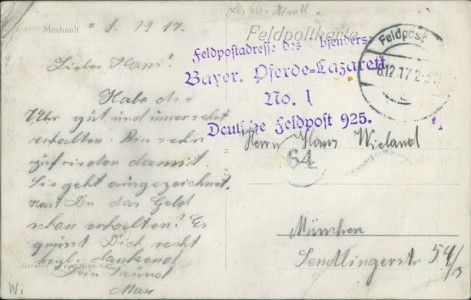 Machault 8. 1917.
Feldpostkarte
Feldpost
8.12.17
Feldpostadresse des Absenders:
Bayer. Pferde-Lazarett
No. 1
Deutsche Feldpost 925.
Lieber Hans!
Habe die
Uhr gut und unversehrt
erhalten. Bin sehr
zufrieden damit.
Sie geht ausgezeichnet.
Hast Du das Geld
schon erhalten? Es
grüsst Dich recht
herzl. dankend
Dein Freund
Max
Herrn Hans Wieland
64
München
Sendlingerstr 54/
Wi